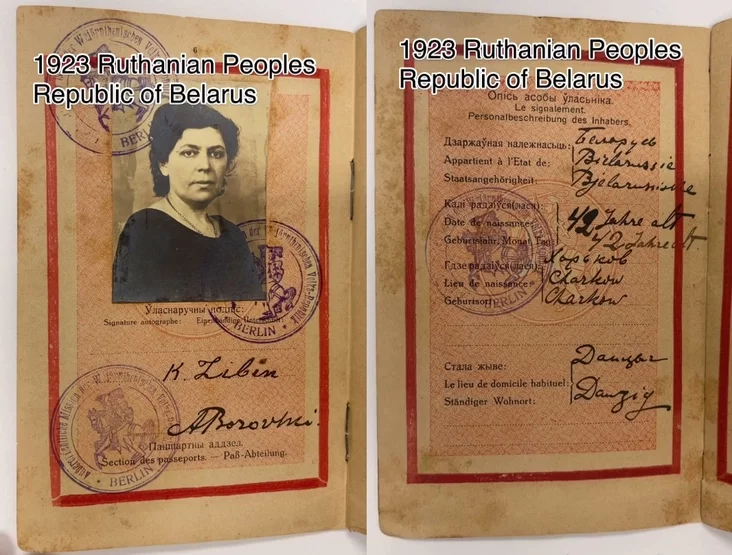 1923 Ruthanian Peoples
Republic of Belarus
BERLIN
BERLIN
Уласнаручны подпіс:
Signature autographe: Eigenhändige
K. Ziben
ABorovski.
Пашпартны аддзел.
Section des passeports. — Paß-Abteilung.
BERLIN
1923 Ruthanian Peoples
Republic of Belarus
Опісь асобы ўласьніка.
Le signalement.
Personalbeschreibung des Inhabers.
Дзаржаўная належнасьць: Белорусь
Appartient à l'Etat de: Bielarussie
Staatsangehörigkeit:
Калі радзіўся(лася):
Date de naissance: 42 Jahre alt
Geburtsjahr, Monat, Tag: 42 Jahre alt.
Гдзе радзіўся(лася): Харьков
Lieu de naissance: Charkow
Geburtsort: Charkow
BERLIN
Стала жыве: Данцыг
Le lieu de domicile habituel: Danzig
Ständiger Wohnort: